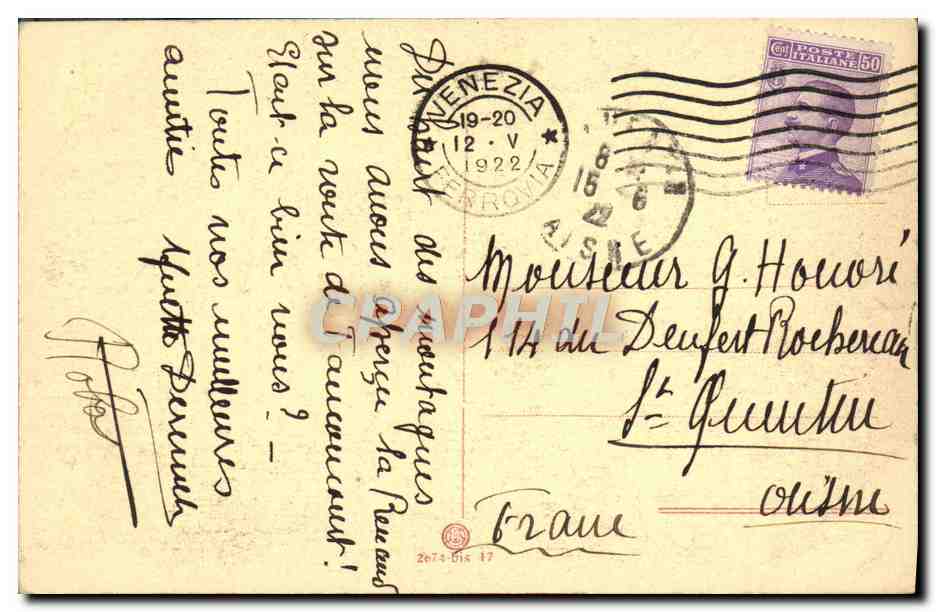 Du haut des montagnes
nous avons aperçu la Renaud
sur la route de Tancourt !
Etait-ce bien vous ? —
Toutes nos meilleures
amitiés
VENEZIA
19-20
12 · V
1922
FERROVIA
15
22
AISNE
POSTE ITALIANE
Cent 50
Monsieur G. Honoré
114 du Denfert Rochereau
St Quentin
Aisne
France
2674-bis 17
CRAPHIL